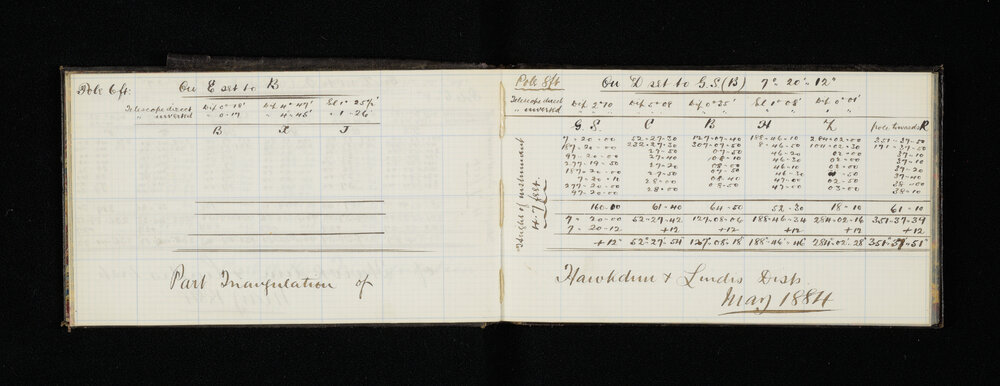 Pole 6 ft.
On E set to B
Telescope direct Def 0° 18' Def 4° 47' El 1° 25½'
" inverted " 0-17 " 4-45' " 1-26'
B X J
Part Triangulation of
Pole 8ft
On D set to G.S (B) 7° 20'-12"
Telescope direct Def 2°10 Def 5° 08 Def 0° 25' El 1° 08' Def 0° 01'
" inverted " " " " "
G.S. C B H Z pole towards R
Height of instrument
7-20-00 52-27-30 127-07-40 188-46-10 284-02-00 351-37-50
187-20-00 232-27-30 307-07-50 8-46-50 104-02-30 171-37-50
97-20-00 27-50 07-50 46-20 02-00 37-10
277-19-50 27-40 08-10 46-30 02-00 37-10
187-20-00 27-20 08-00 46-10 02-00 37-20
7-20-10 27-50 07-50 46-30 50 37-40
277-20-00 28-00 08-40 47-00 02-50 38-00
97-20-00 28-00 08-50 47-00 03-00 38-10
160-00 61-40 64-50 52-30 18-10 61-10
7-20-00 52-27-42 127-08-06 188-46-34 284-02-16 351-37-39
7-20-12 +12 +12 +12 +12 +12
+12" 52°-27-54 127-08-18 188-46-46 284-02-28 351-37-51
Hawkdun & Lindis Dists
May 1884